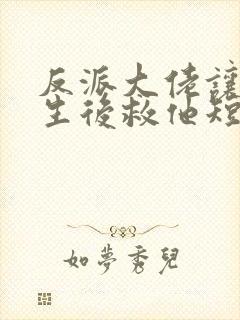 反派大佬讓
生後救他短
如夢秀兒